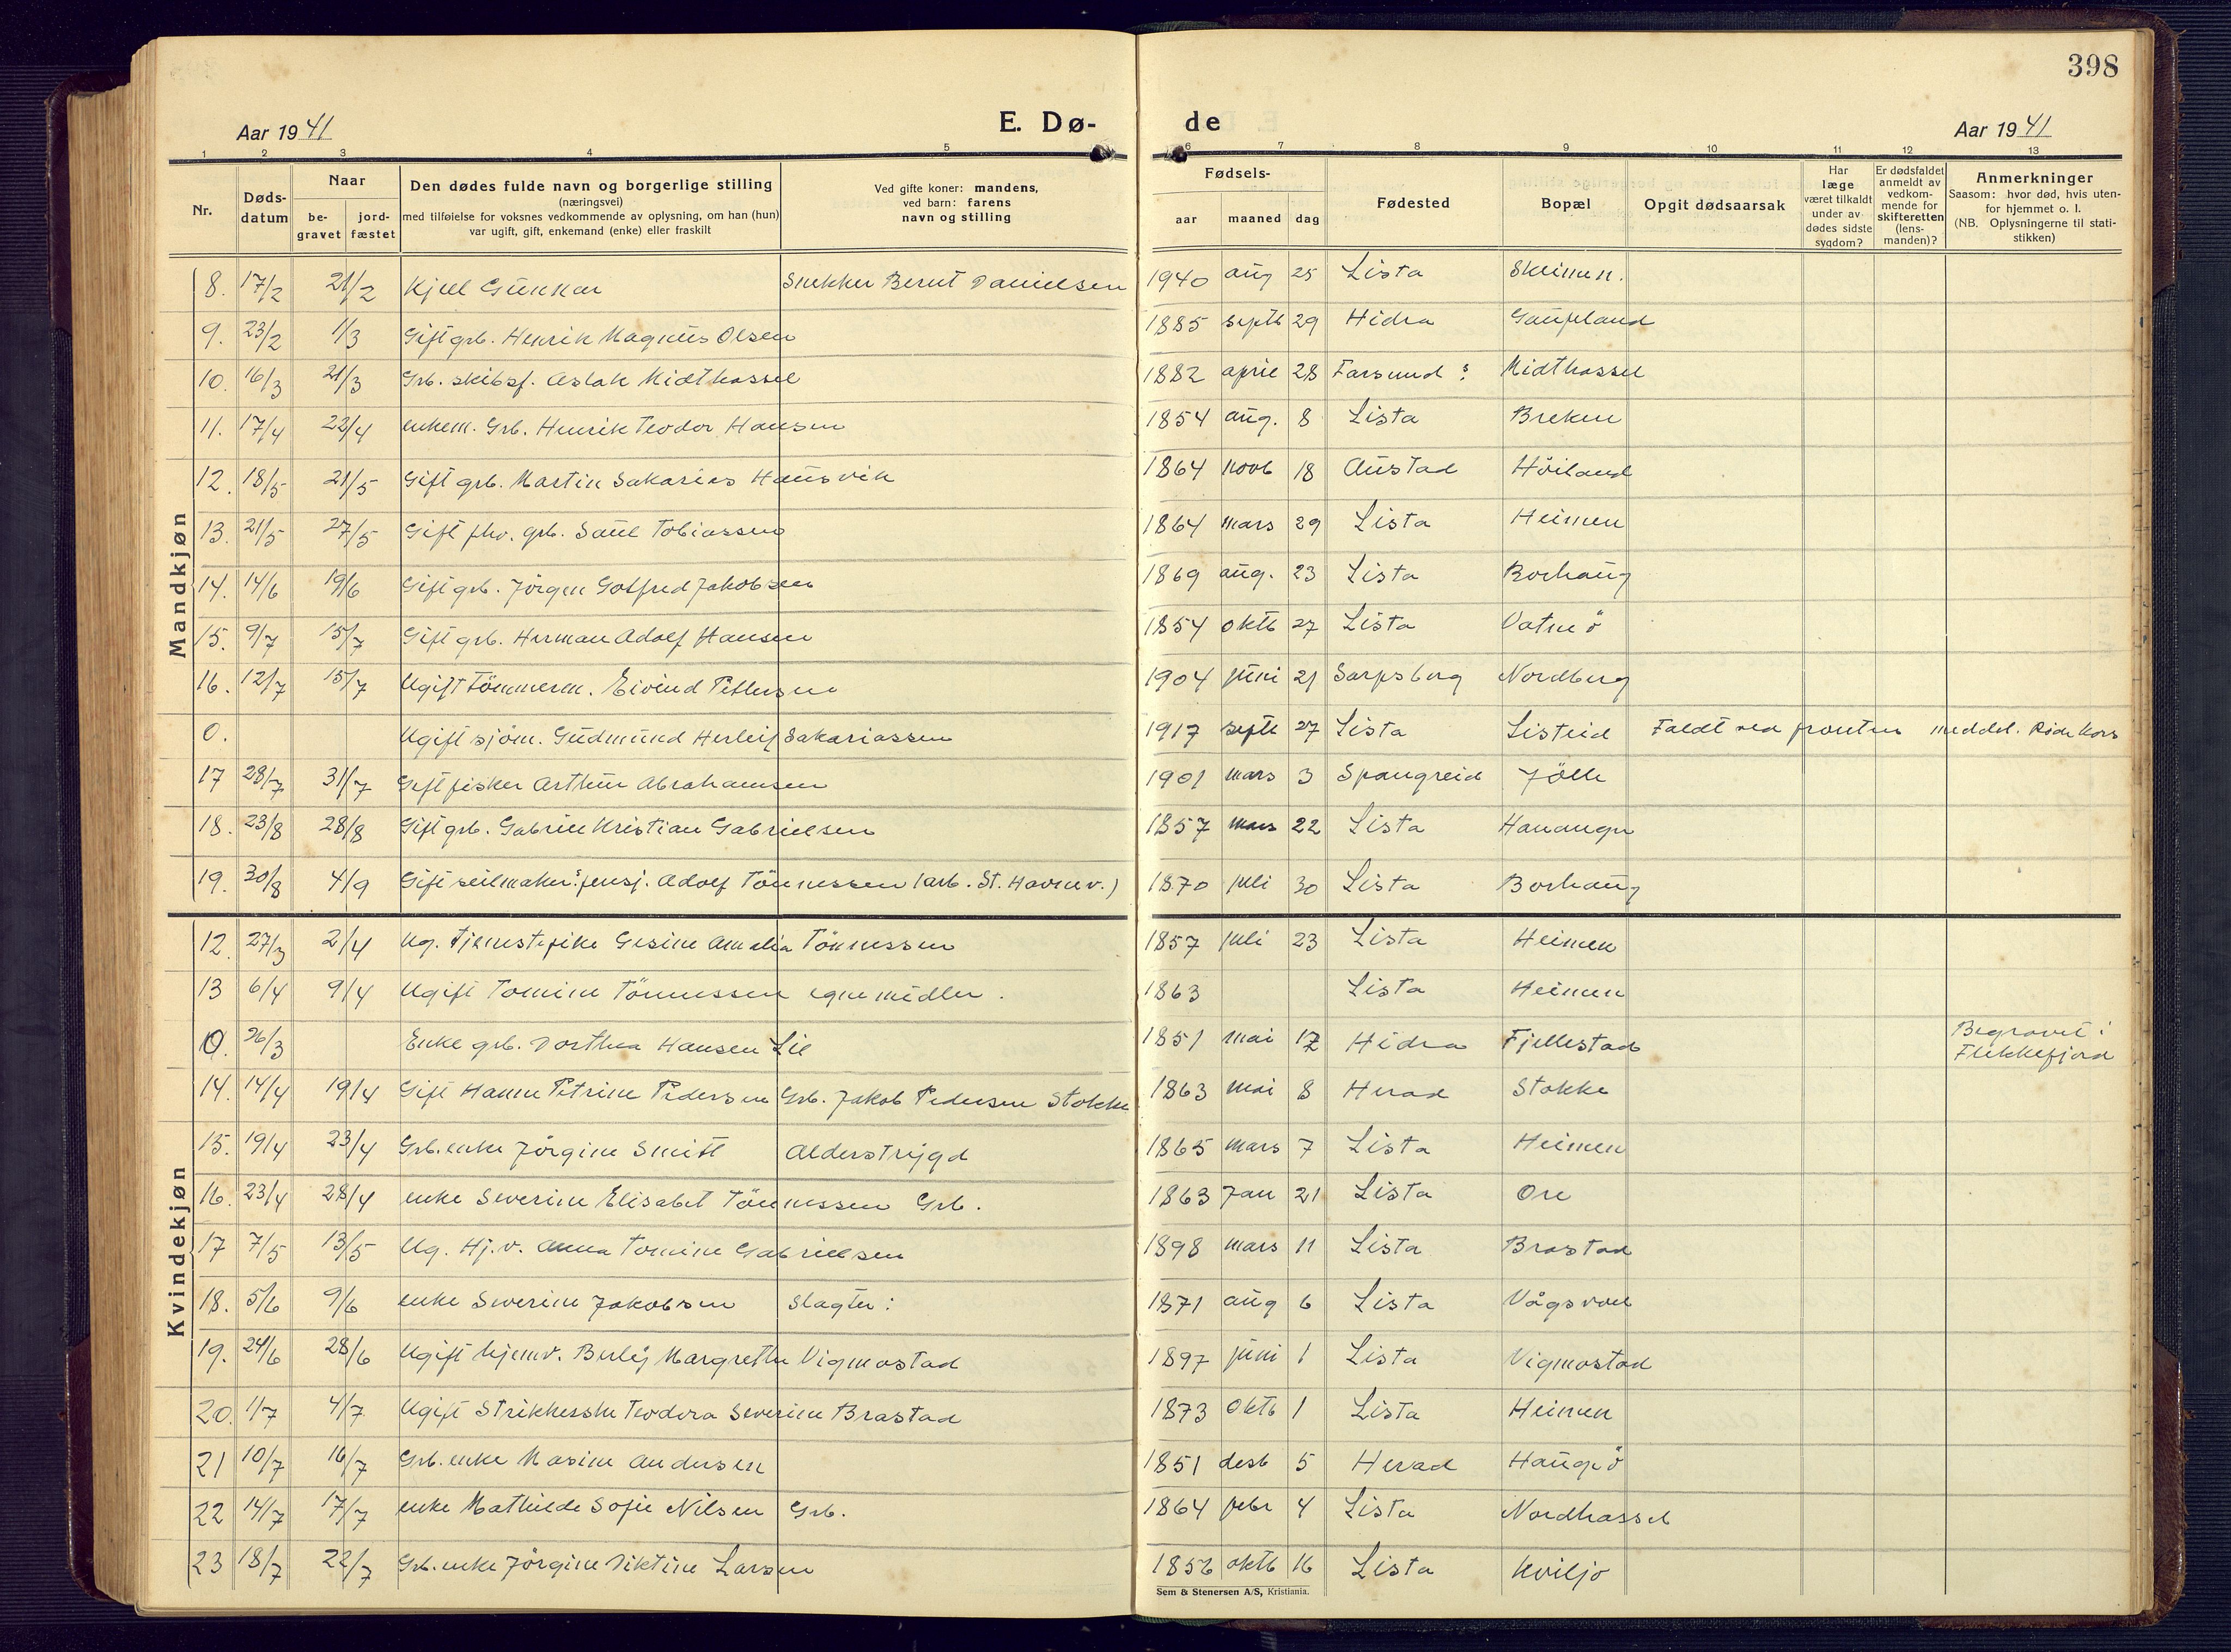 398
Aar 1941
E. Dø-
de
Aar 1941
1 2 3 4 5 6 7 8 9 10 11 12 13
Nr.
Døds-
datum
Naar
be-
gravet
jord-
fæstet
Den dødes fulde navn og borgerlige stilling
(næringsvei)
med tilføielse for voksnes vedkommende av oplysning, om han (hun)
var ugift, gift, enkemand (enke) eller fraskilt
Ved gifte koner: mandens,
ved barn: farens
navn og stilling
Fødsels-
aar maaned dag
Fødested
Bopæl
Opgit dødsaarsak
Har
læge
været tilkaldt
under av
dødes sidste
sygdom?
Er dødsfaldet
anmeldt av
vedkom-
mende for
skifteretten
(lens-
manden)?
Anmerkninger
Saasom: hvor død, hvis uten-
for hjemmet o. l.
(NB. Oplysningerne til stati-
stikken)
Mandkjøn
8. 17/2 21/2 Kjell Gunnar Snekker Bernt Danielsen 1940 aug 25 Lista Skeimen.
9. 23/2 1/3 Gift grb. Henrik Magnus Olsen 1885 septb 29 Hidra Gaupland
10. 16/3 21/3 Grb. skibsf. Aslak Midthassel 1882 april 28 Farsund s. Midthassel
11. 17/4 22/4 enkem. Grb. Henrik Teodor Hansen 1854 aug. 8 Lista Breken
12. 18/5 21/5 Gift grb. Martin Sakarias Hausvik 1864 novb 18 Austad Höiland
13. 21/5 27/5 Gift fhv. grb. Saul Tobiassen 1864 mars 29 Lista Heimen
14. 14/6 19/6 Gift grb. Jörgen Gotfred Jakobsen 1869 aug. 23 Lista Borhaug
15. 9/7 15/7 Gift grb. Herman Adolf Hansen 1854 oktb 27 Lista Vatneö
16. 12/7 15/7 Ugift Tömmerm. Eivind Pettersen 1904 juni 21 Sarpsborg Nordberg
0. Ugift sjöm. Gudmund Herleif Sakariassen 1917 septb 27 Lista Listeid Faldt ved fronten meddel. Röde Kors
17 28/7 31/7 Gift fisker Arthur Abrahamsen 1901 mars 3 Spangreid Jölle
18. 23/8 28/8 Gift grb. Gabriel Kristian Gabrielsen 1857 mars 22 Lista Hananger
19. 30/8 4/9 Gift seilmaker: pensj. Adolf Tönnessen (arb. St. Havnev.) 1870 juli 30 Lista Borhaug
Kvindekjøn
12. 27/3 2/4 Ug. Tjenestepike Gesine Amalia Tönnessen 1857 juli 23 Lista Heimen
13 6/4 9/4 Ugift Tomine Tönnessen egne midler. 1863 Lista Heimen
0. 26/3 Enke grb. Dorthea Hansen Lie 1851 mai 12 Hidra Fjellestad Begravet i
Flekkefjord
14. 14/4 19/4 Gift Hanne Petrine Pedersen Grb. Jakob Pedersen Stokke 1863 mai 8 Herad Stokke
15. 19/4 23/4 Grb. enke Jörgine Smitt Alderstrygd 1865 mars 7 Lista Heimen
16. 23/4 28/4 enke Severine Elisabet Tönnessen Grb. 1863 Jan 21 Lista Ore
17 7/5 13/5 Ug. Hj.v. Anna Tomine Gabrielsen 1898 mars 11 Lista Brastad
18. 5/6 9/6 enke Severine Jakobsen Slagter: 1871 aug 6 Lista Vågsvoll
19. 24/6 28/6 Ugift hjemv. Margrethe Vigmostad 1897 juni 1 Lista Vigmostad
20. 1/7 4/7 Ugift Strikkerske Teodora Severine Brastad 1873 oktb 1 Lista Heimen
21 10/7 16/7 Grb. enke Masine Andersen 1851 desb 5 Herad Haugeö
22 14/7 17/7 enke Mathilde Sofie Nilsen Grb. 1864 febr 4 Lista Nordhassel
23 18/7 22/7 Grb. enke Jörgine Diktine Larsen 1856 oktb 16 Lista Kviljo
Sem & Stenersen A/S, Kristiania.